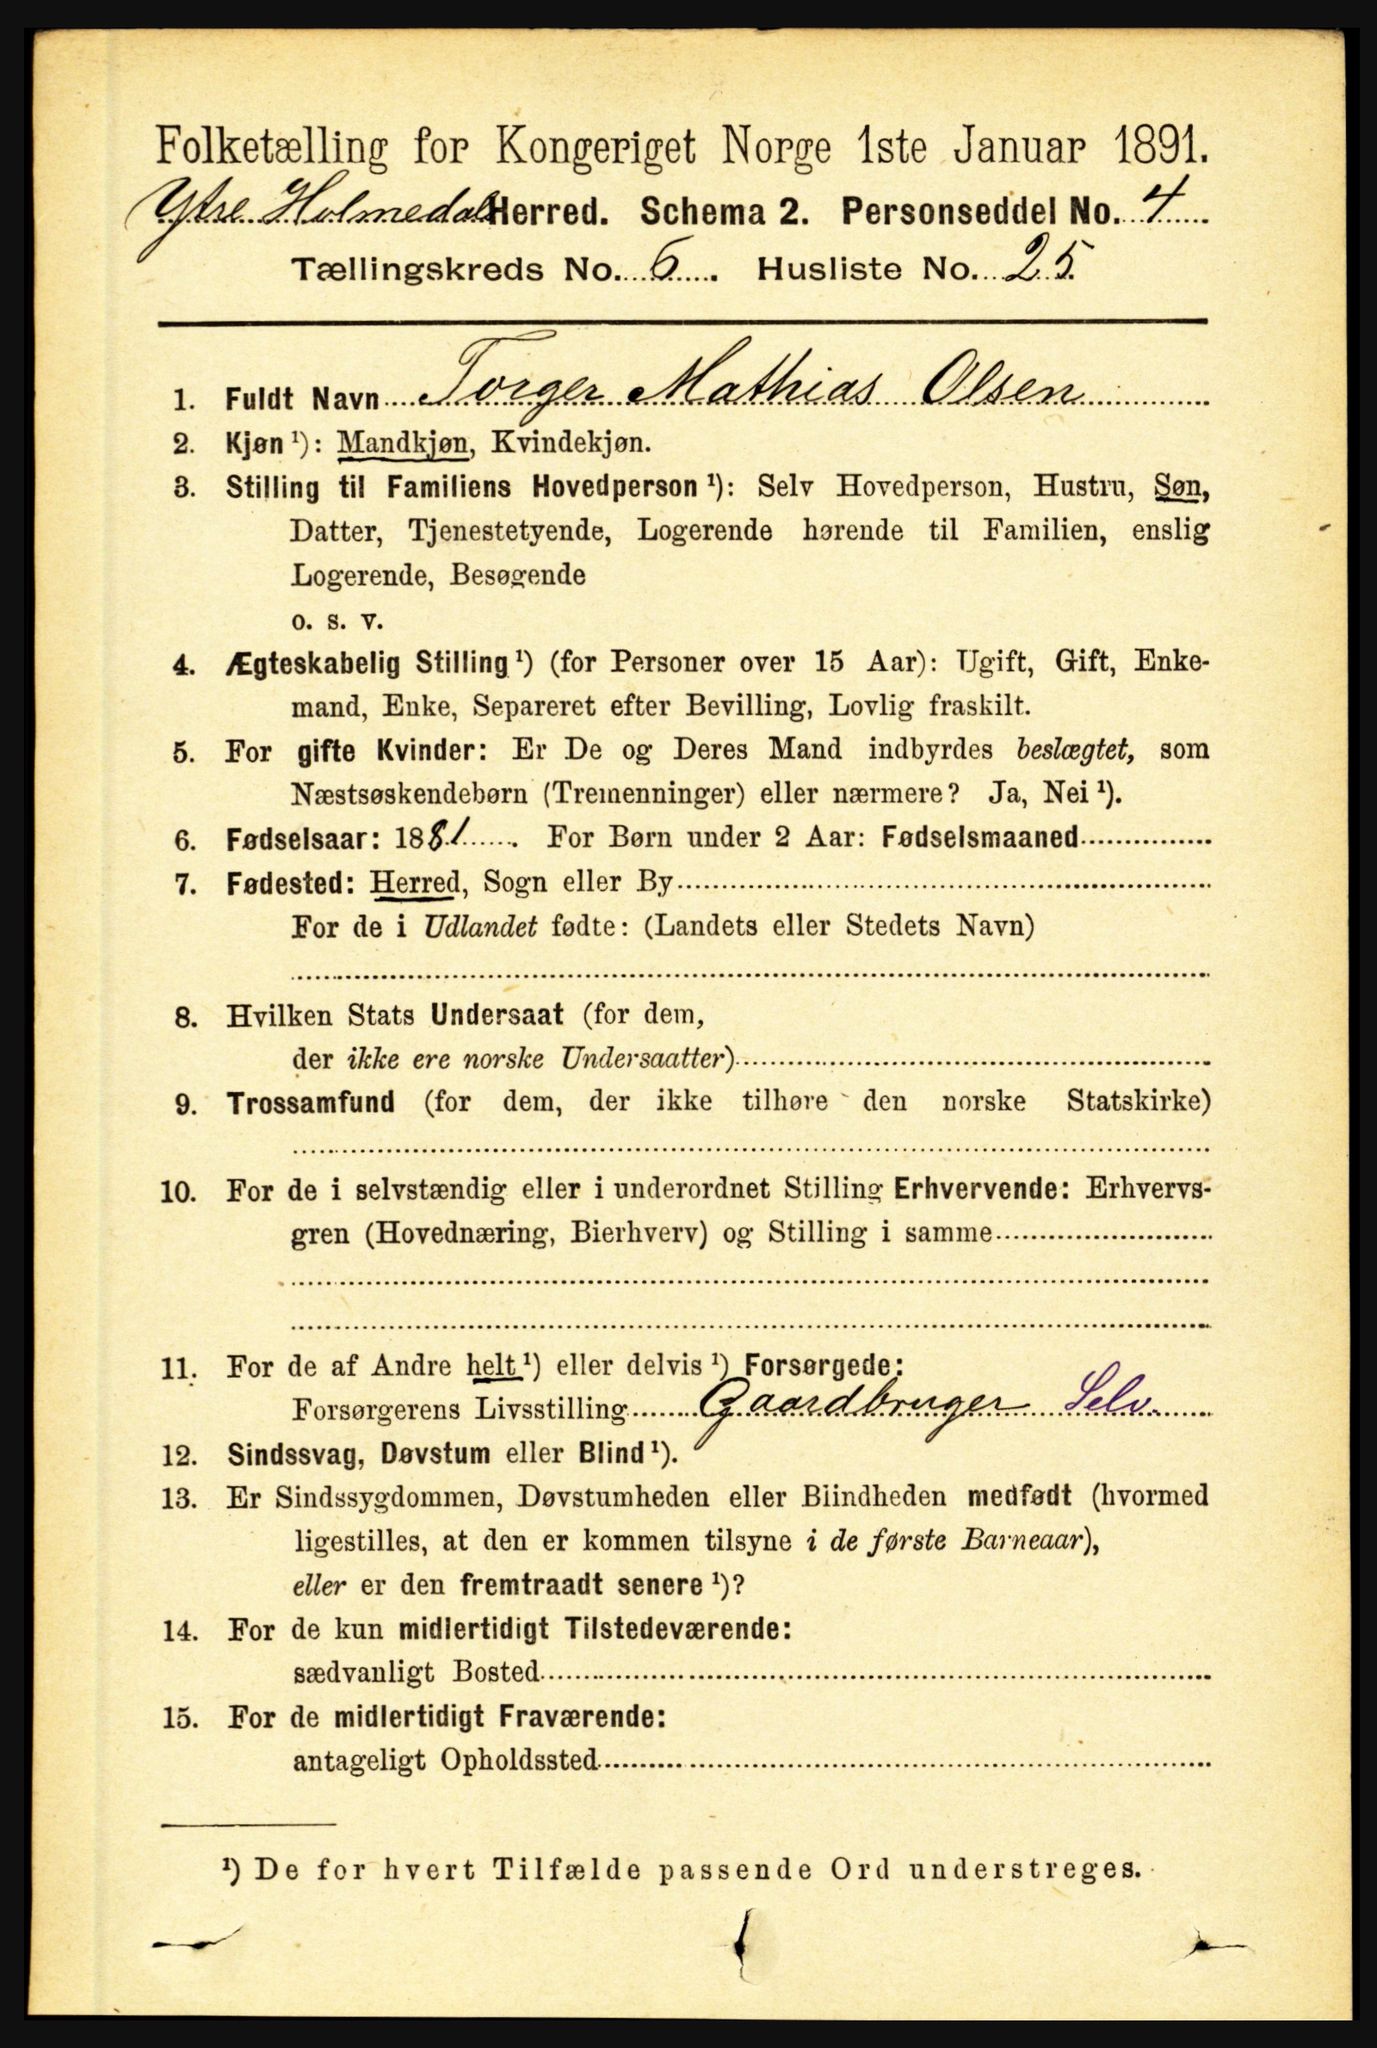 Folketælling for Kongeriget Norge 1ste Januar 1891.
Ytre Holmedals Herred. Schema 2. Personseddel No. 4
Tællingskreds No. 6. Husliste No. 25.
1. Fuldt Navn Torger Mathias Olsen
2. Kjøn ¹): Mandkjøn, Kvindekjøn.
3. Stilling til Familiens Hovedperson ¹): Selv Hovedperson, Hustru, Søn,
Datter, Tjenestetyende, Logerende hørende til Familien, enslig
Logerende, Besøgende
o. s. v.
4. Ægteskabelig Stilling ¹) (for Personer over 15 Aar): Ugift, Gift, Enke-
mand, Enke, Separeret efter Bevilling, Lovlig fraskilt.
5. For gifte Kvinder: Er De og Deres Mand indbyrdes beslægtet, som
Næstsøskendebørn (Tremenninger) eller nærmere? Ja, Nei ¹).
6. Fødselsaar: 1881. For Børn under 2 Aar: Fødselsmaaned
7. Fødested: Herred, Sogn eller By
For de i Udlandet fødte: (Landets eller Stedets Navn)
8. Hvilken Stats Undersaat (for dem,
der ikke ere norske Undersaatter)
9. Trossamfund (for dem, der ikke tilhøre den norske Statskirke)
10. For de i selvstændig eller i underordnet Stilling Erhvervende: Erhvervs-
gren (Hovednæring, Bierhverv) og Stilling i samme
11. For de af Andre helt ¹) eller delvis ¹) Forsørgede:
Forsørgerens Livsstilling Gaardbruger Selv.
12. Sindssvag, Døvstum eller Blind ¹).
13. Er Sindssygdommen, Døvstumheden eller Blindheden medfødt (hvormed
ligestilles, at den er kommen tilsyne i de første Barneaar),
eller er den fremtraadt senere ¹)?
14. For de kun midlertidigt Tilstedeværende:
sædvanligt Bosted
15. For de midlertidigt Fraværende:
antageligt Opholdssted
¹) De for hvert Tilfælde passende Ord understreges.